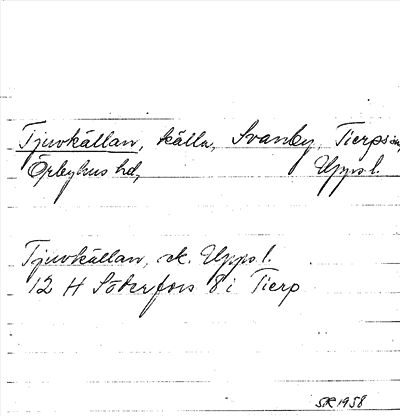 Tjuvkällan, källa, Svanby, Tierps sn,
Örbyhus hd, Uppsl.
Tjuvkällan, sk. Uppsl.
12 H Söderfors 8 i Tierp
SR 1958